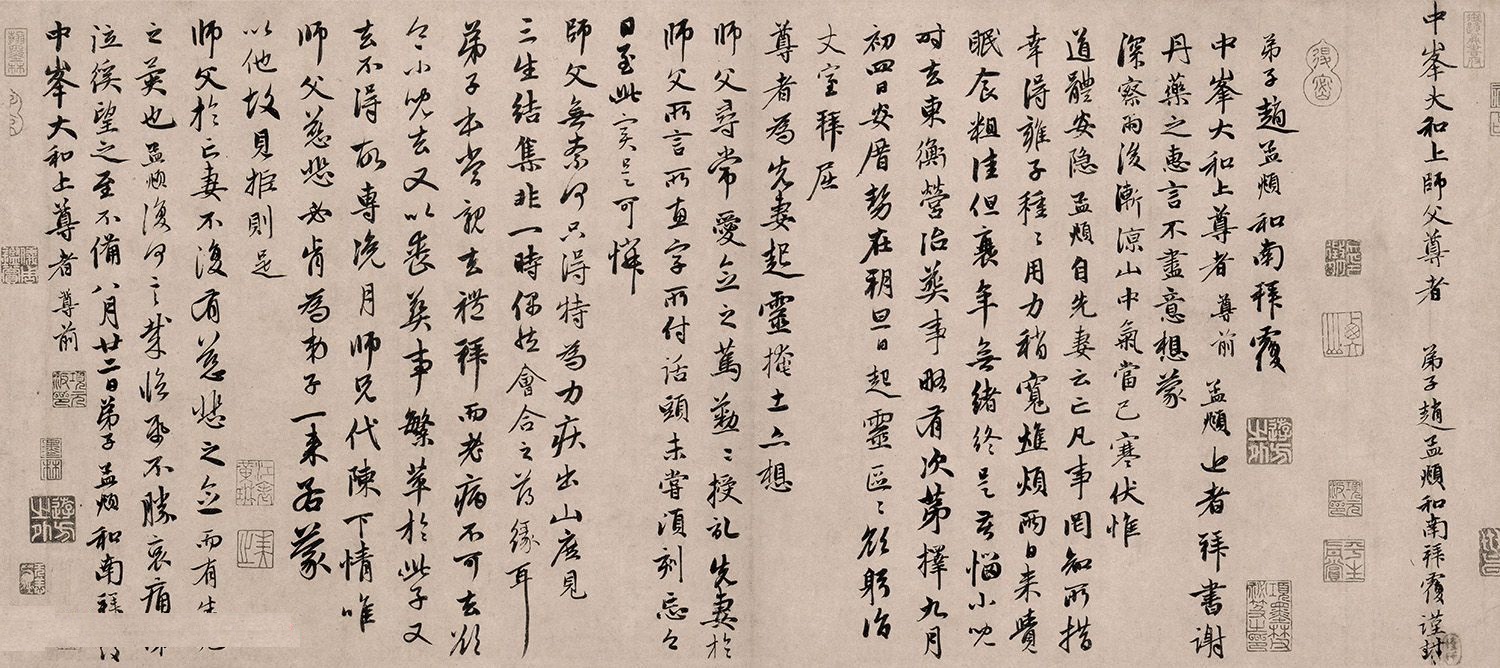 中峯大和上師父尊者　弟子趙孟頫和南拜覆謹封
弟子趙孟頫和南拜覆
中峯大和上尊者尊前　孟頫上者拜書謝
丹藥之惠言不盡意想蒙
深察雨後漸涼山中氣當已寒伏惟
道體安隱孟頫自先妻云亡凡事罔知所措
幸得雍子種〻用力稍寬憔煩兩日來
眠食粗佳但衰年無緒終是苦惱小兒
時去東衡營治葬事略有次第擇九月
初四日安厝勢在朔旦日起靈區〻欲躬詣
丈室拜屈
尊者為先妻起靈掩土亦想
師父尋常愛念之篤勤〻授記先妻於
師父所言所惠字所付話頭未嘗頃刻忘今
日至此實是可憐
師父無奈何只得特為力疾出山庶見
三生結集非一時偶然會合之薄緣耳
弟子本當親去禮拜而老病不可去欲
令小兒去又以喪葬事繁萃於此子又
去不得故專浼月師兄代陳下情唯
師父慈悲必肯為弟子一來若蒙
以他故見拒則是
師父於亡妻不復有慈悲之念而有生死
之異也孟頫復何言哉臨紙不勝哀痛涕
泣徯望之至不備八月廿二日弟子孟頫和南拜覆
中峯大和上尊者尊前